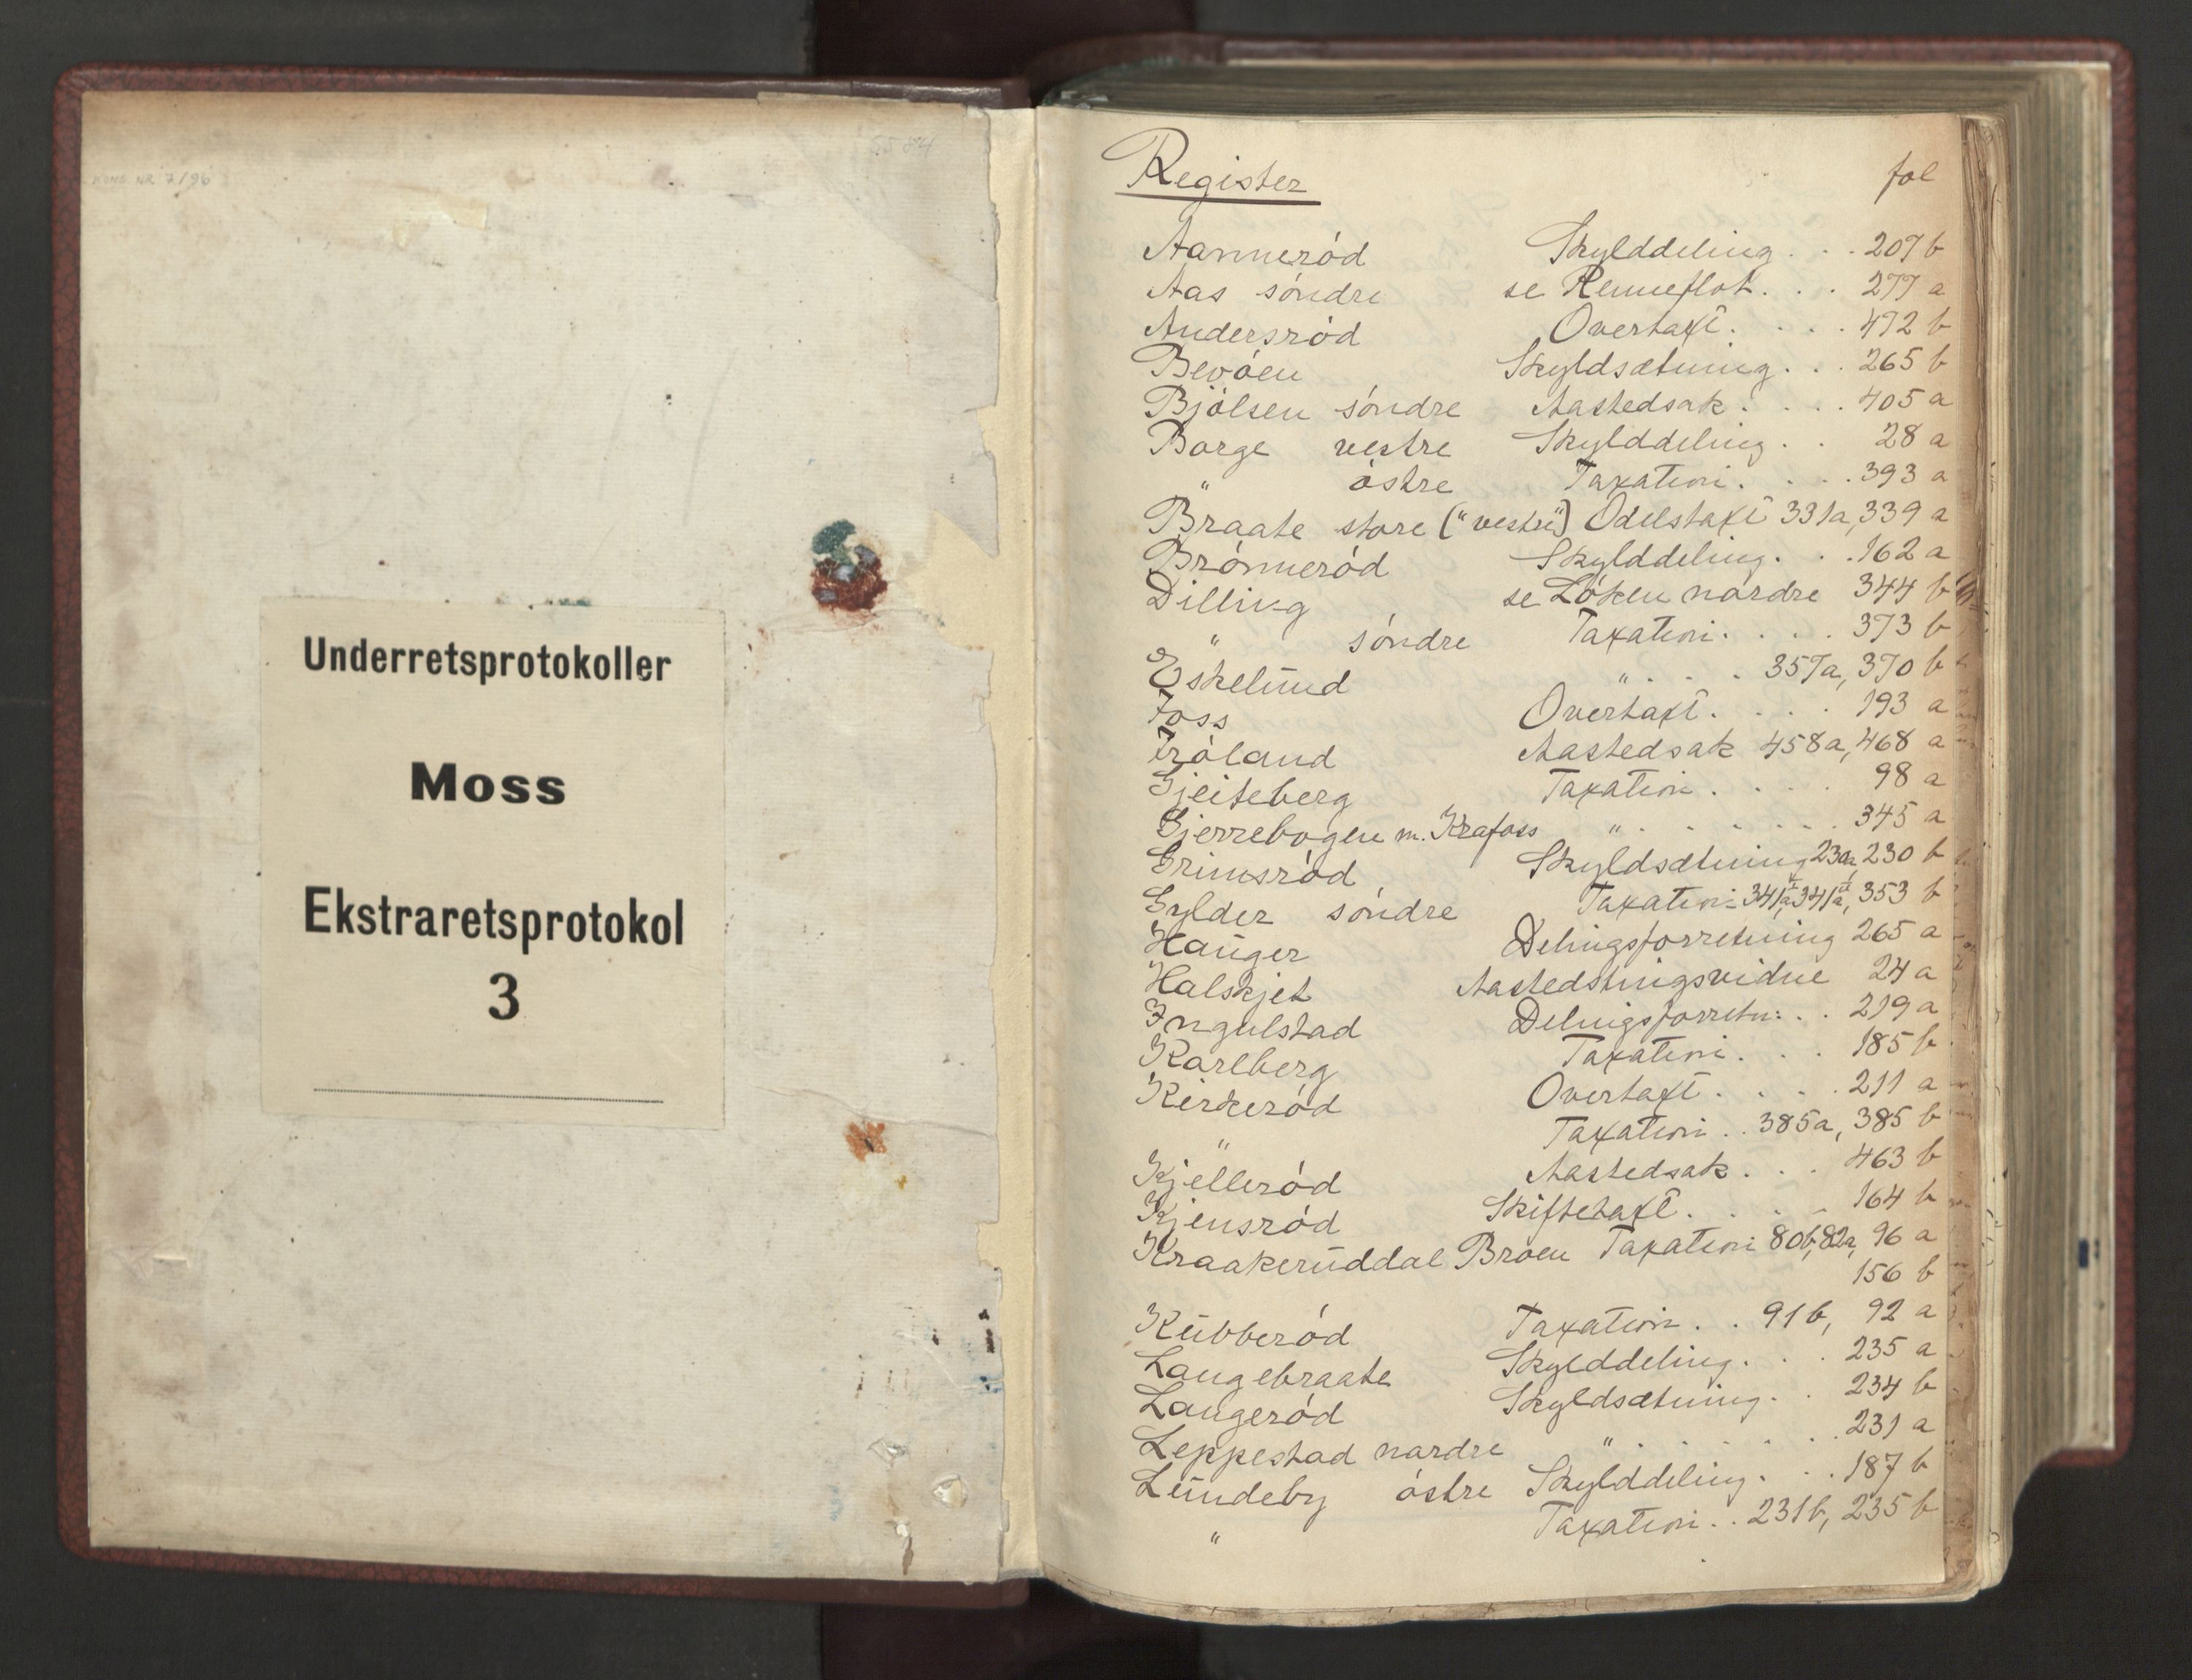 KONS. NR. 7/96
Underretsprotokoller
Moss
Ekstraretsprotokol
3
Register fol
Aanneród Skylddeling . . . 207 b
Aas sóndre se Renneflot . . . 277 a
Andersród Overtaxt. . . . 472 b
Bevóen Skyldsætning. . . 265 b
Bjólsen sóndre Aastedsak . . . . 405 a
Borge vestre Skylddeling . . 28 a
" óstre Taxation. . . . 393 a
Braate store ("vestre") Odelstaxt 331a, 339 a
Brónneród Skylddeling. . . 162 a
Dilling se Lóken nordre 344 b
" sóndre Taxation. . . . 373 b
Eskelund " . . . . 357a, 370 b
Foss Overtaxt. . . . . 193 a
Fróland Aastedsak 458a, 468 a
Gjeiteberg Taxation . . . . 98 a
Gjerrebogen m. Krafoss " . . . . . . . 345 a
Grimsród Skyldsætning 230a, 230 b
Gylder sóndre Taxation 341a I, 341a II, 353 b
Hauger Delingsforretning 265 a
Halskjet Aastedstingsvidne 24 a
Ingulstad Delingsforretn: . . 219 a
Karlberg Taxation. . . . 185 b
Kirkeród Overtaxt . . . . 211 a
" Taxation . . 385a, 385 b
Kjelleród Aastedsak . . . 463 b
Kjensród Skiftetaxt. . . . 164 b
Kraakeruddal Broen Taxation 80b, 82a, 96 a
156 b
Kubberód Taxation . . 91 b, 92 a
Langebraate Skylddeling. . . . 235 a
Langeród Skyldsætning. . 234 b
Leppestad nordre " . . . . . . 231 a
Lundeby óstre Skylddeling. . . 187 b
" Taxation . . 231b, 235 b